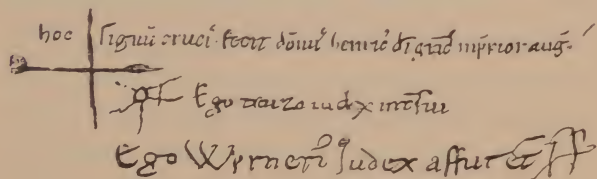 hoc signū cruciˢ fecit dōnuˢ henricˢ dī gratīa inpˢrior aug̃.
Ego traizo iudex int̄fui
Ego Wrnerið Judex affui et ss